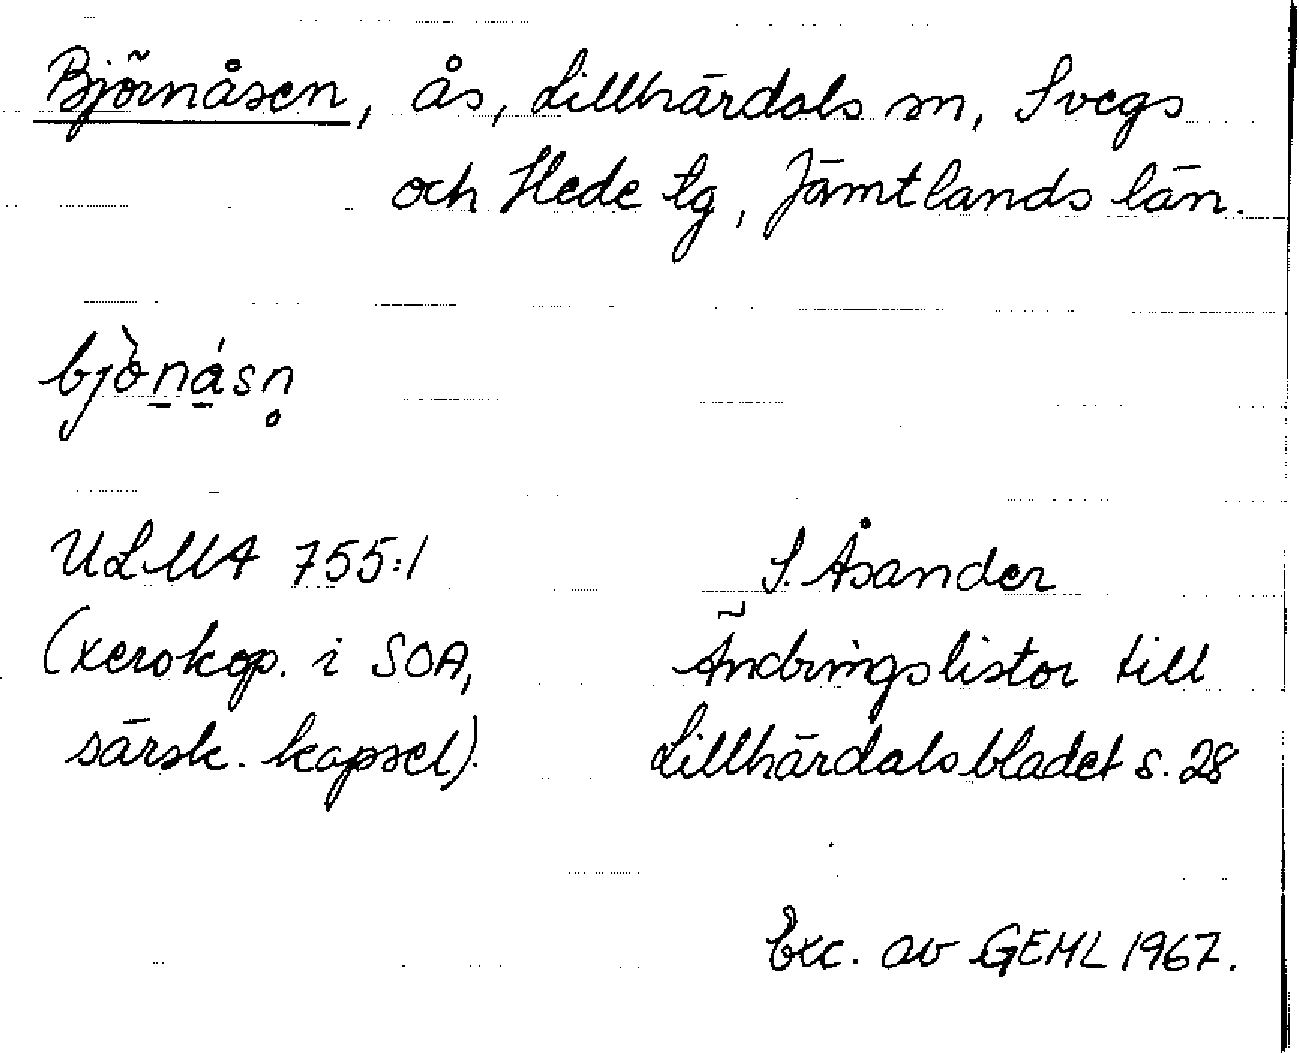 Björnåsen, ås, Lillhärdals sn, Svegs
och Hede tg, Jämtlands län.
bjònásn̥
ULMA 755:1
(xerokop. i SOA,
särsk. kapsel).
S. Åsander
Ändringslistor till
Lillhärdalsbladet s. 28
Exc. av GEML 1967.